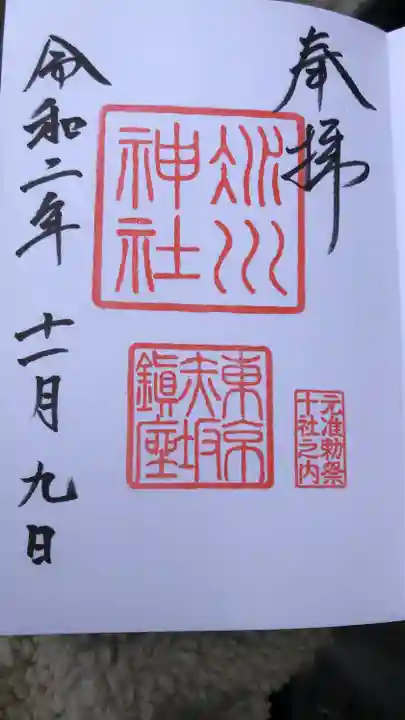 奉拝
氷川
神社
東京
赤坂
鎮座
元准勅祭
十社之内
令和二年 十一月 九日